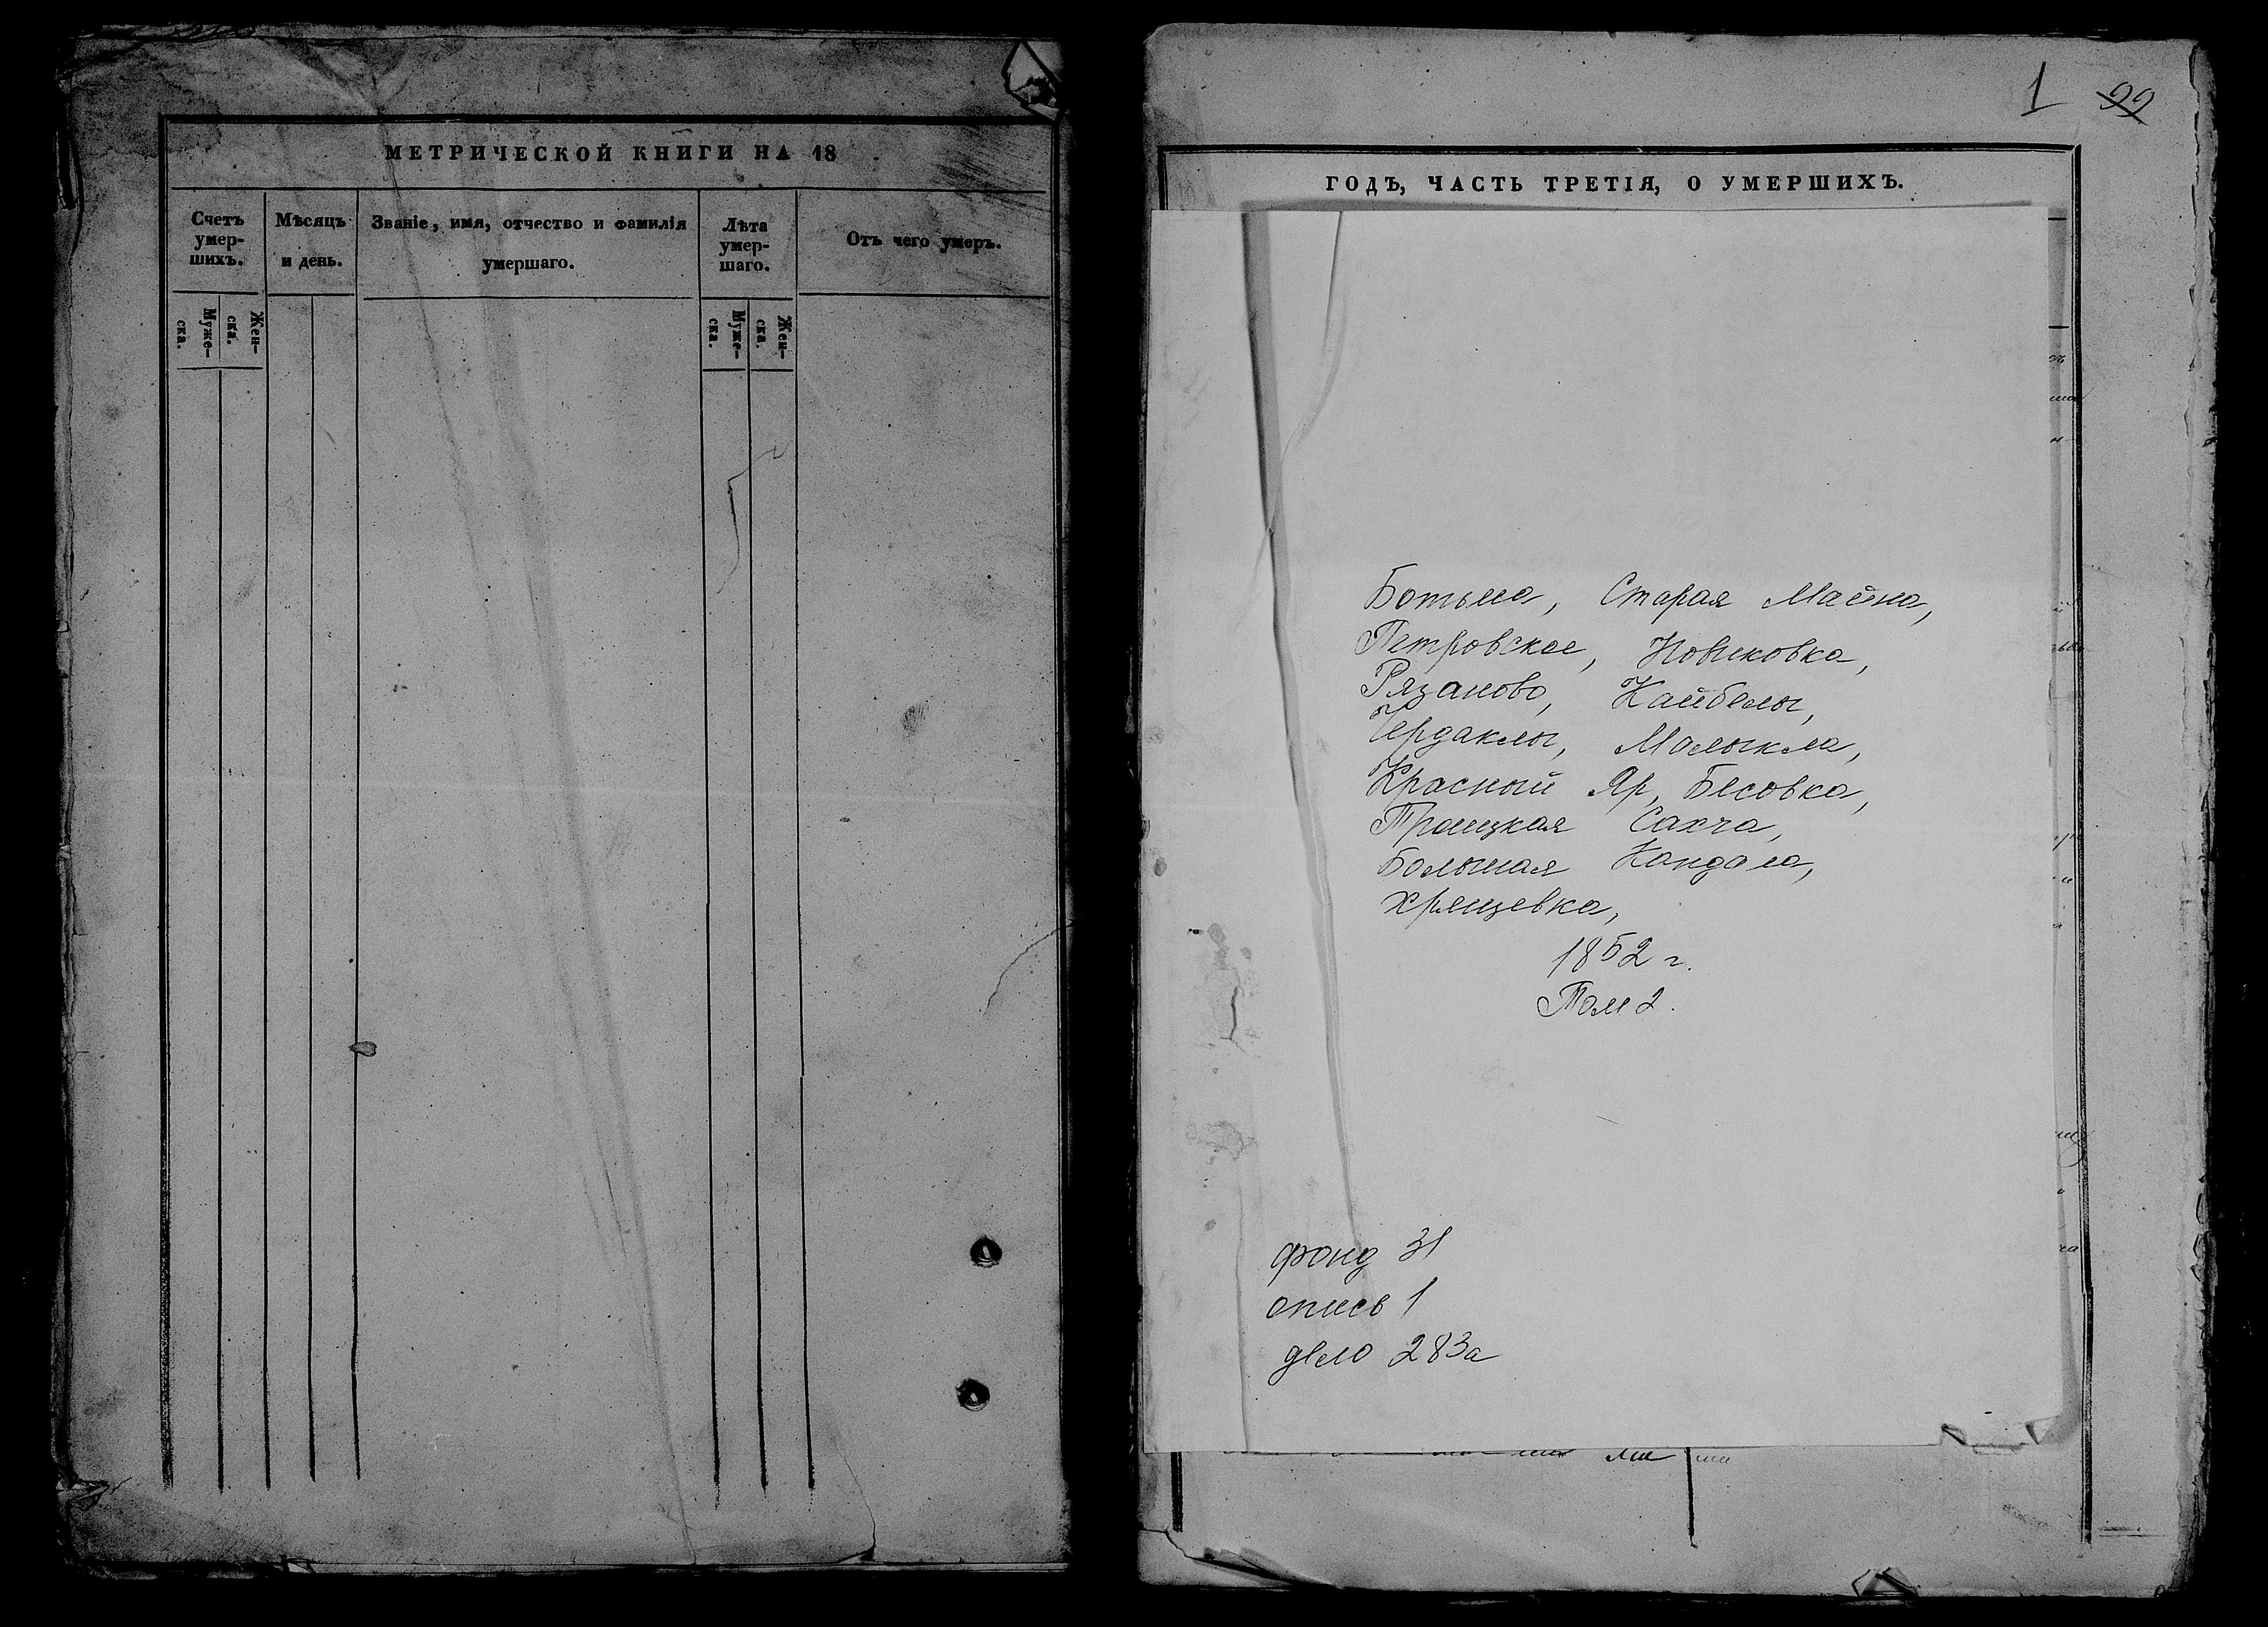 МЕТРИЧЕСКОЙ КНИГИ НА 18
Счетъ умер-шихъ.
Мѣсяцъ и день.
Званіе, имя, отчество и фамилія умершаго.
Лѣта умер-шаго.
Отъ чего умеръ.
Муже-ска.
Жен-ска.
Муже-ска.
Жен-ска.
1 99
ГОДЪ, ЧАСТЬ ТРЕТІЯ, О УМЕРШИХЪ.
Ботьма, Старая Майна,
Петровское, Новиковка,
Рязаново, Кайбелы,
Чердаклы, Малыкла,
Красный Яр, Бесовка,
Троицкая Сахча,
Большая Кандала,
Хрящевка,
1852 г.
Том 2.
фонд 31
опись 1
дело 283а